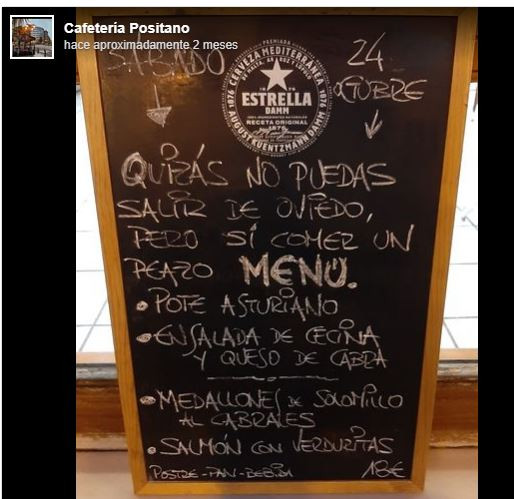 Cafetería Positano
hace aproximadamente 2 meses
SÁBADO
24
OCTUBRE
CERVEZA MEDITERRÁNEA
1876
ESTRELLA
DAMM
RECETA ORIGINAL
1876
AUGUST KUENTZMANN DAMM
QUIZÁS NO PUEDAS
SALIR DE OVIEDO,
PERO SÍ COMER UN
PEAZO MENÚ.
• POTE ASTURIANO
• ENSALADA DE CECINA
Y QUESO DE CABRA
• MEDALLONES DE SOLOMILLO
AL CABRALES
• SALMÓN CON VERDURITAS
POSTRE-PAN-BEBIDA 18€